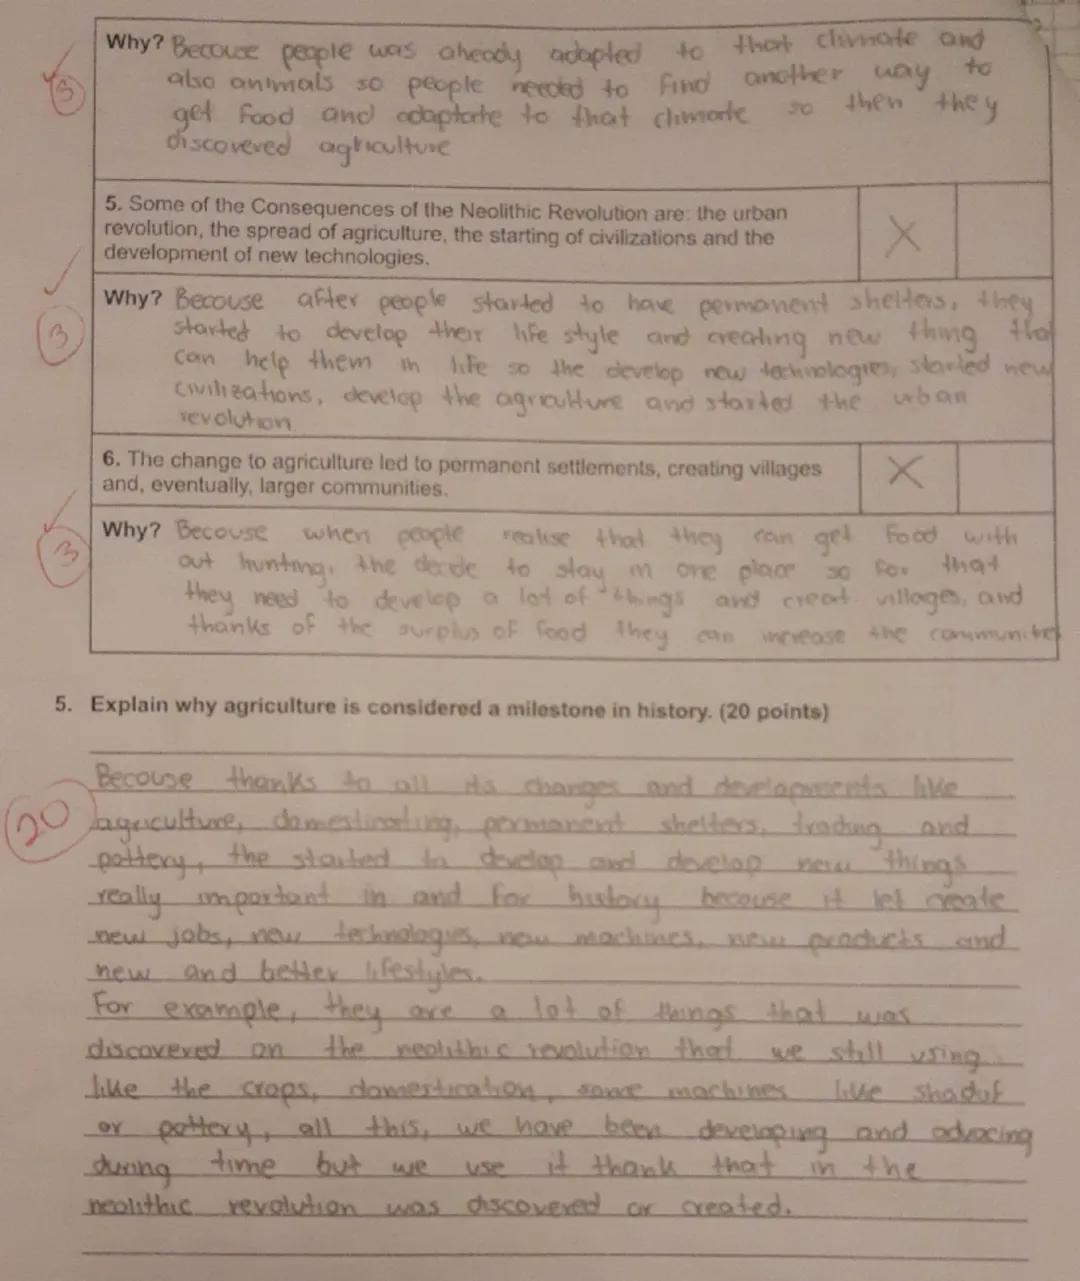 Why? Becouse people was already adapted to that climate and
also animals so people needed to find another way to
get food and adaptate to that climate so then they
discovered agriculture
3
5. Some of the Consequences of the Neolithic Revolution are: the urban
revolution, the spread of agriculture, the starting of civilizations and the
development of new technologies.
X
Why? Becouse after people started to have permanent shelters, they
started to develop their life style and creating new thing tha
can help them in life so the develop new technologies, started new
civilizations, develop the agriculture and started the urban
revolution
3
6. The change to agriculture led to permanent settlements, creating villages
and, eventually, larger communities.
X
Why? Becouse when people realise that they can get food with
out hunting, the decide to stay in one place so for that
they need to develop a lot of things and creat villages, and
thanks of the surplus of food they can increase the communites
3
5. Explain why agriculture is considered a milestone in history. (20 points)
Becouse thanks to all its changes and developments like
20
agriculture, domesticating, permanent shelters, trading and
pottery, the started to develop and develop new things
really important in and for history because it let create
new jobs, new technologies, new machines, new products and
new and better lifestyles.
For example, they are a lot of things that was
discovered on the neolithic revolution that we still using
like the crops, domestication, some machines like shaduf
or pottery, all this, we have been developing and advacing
during time but we use it thank that in the
neolithic revolution was discovered or created.